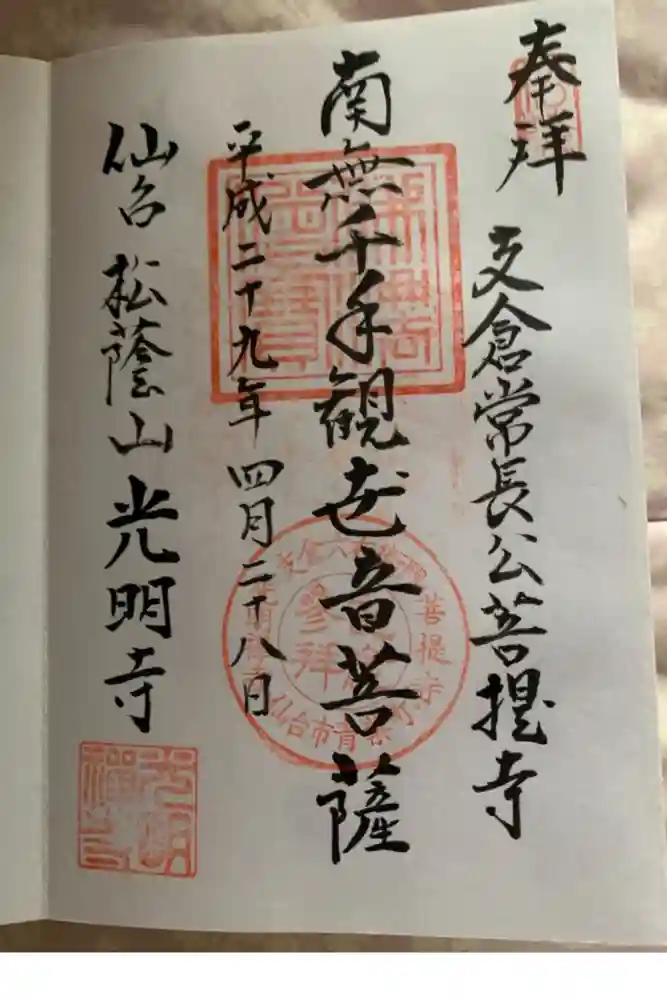 奉拝
支倉常長公菩提寺
南無千手観世音菩薩
平成二十九年四月二十八日
仙台 松蔭山 光明寺
菩提寺
参拝
仙台市青葉
光明
禅寺